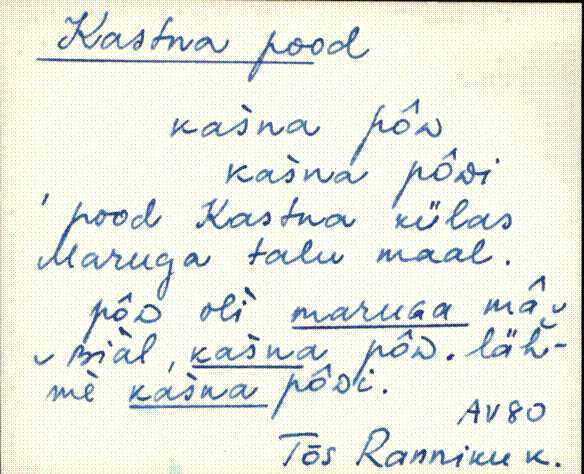 Kastna pood
kašna pôᴅ
kašna pôᴅi
' pood Kastna külas
Maruga talu maal.
pôᴅ oli̬ maruga mâ
piäl, kašna pôᴅ. läh-
mè kašna pôᴅi.
AV80
Tõs Ranniku k.